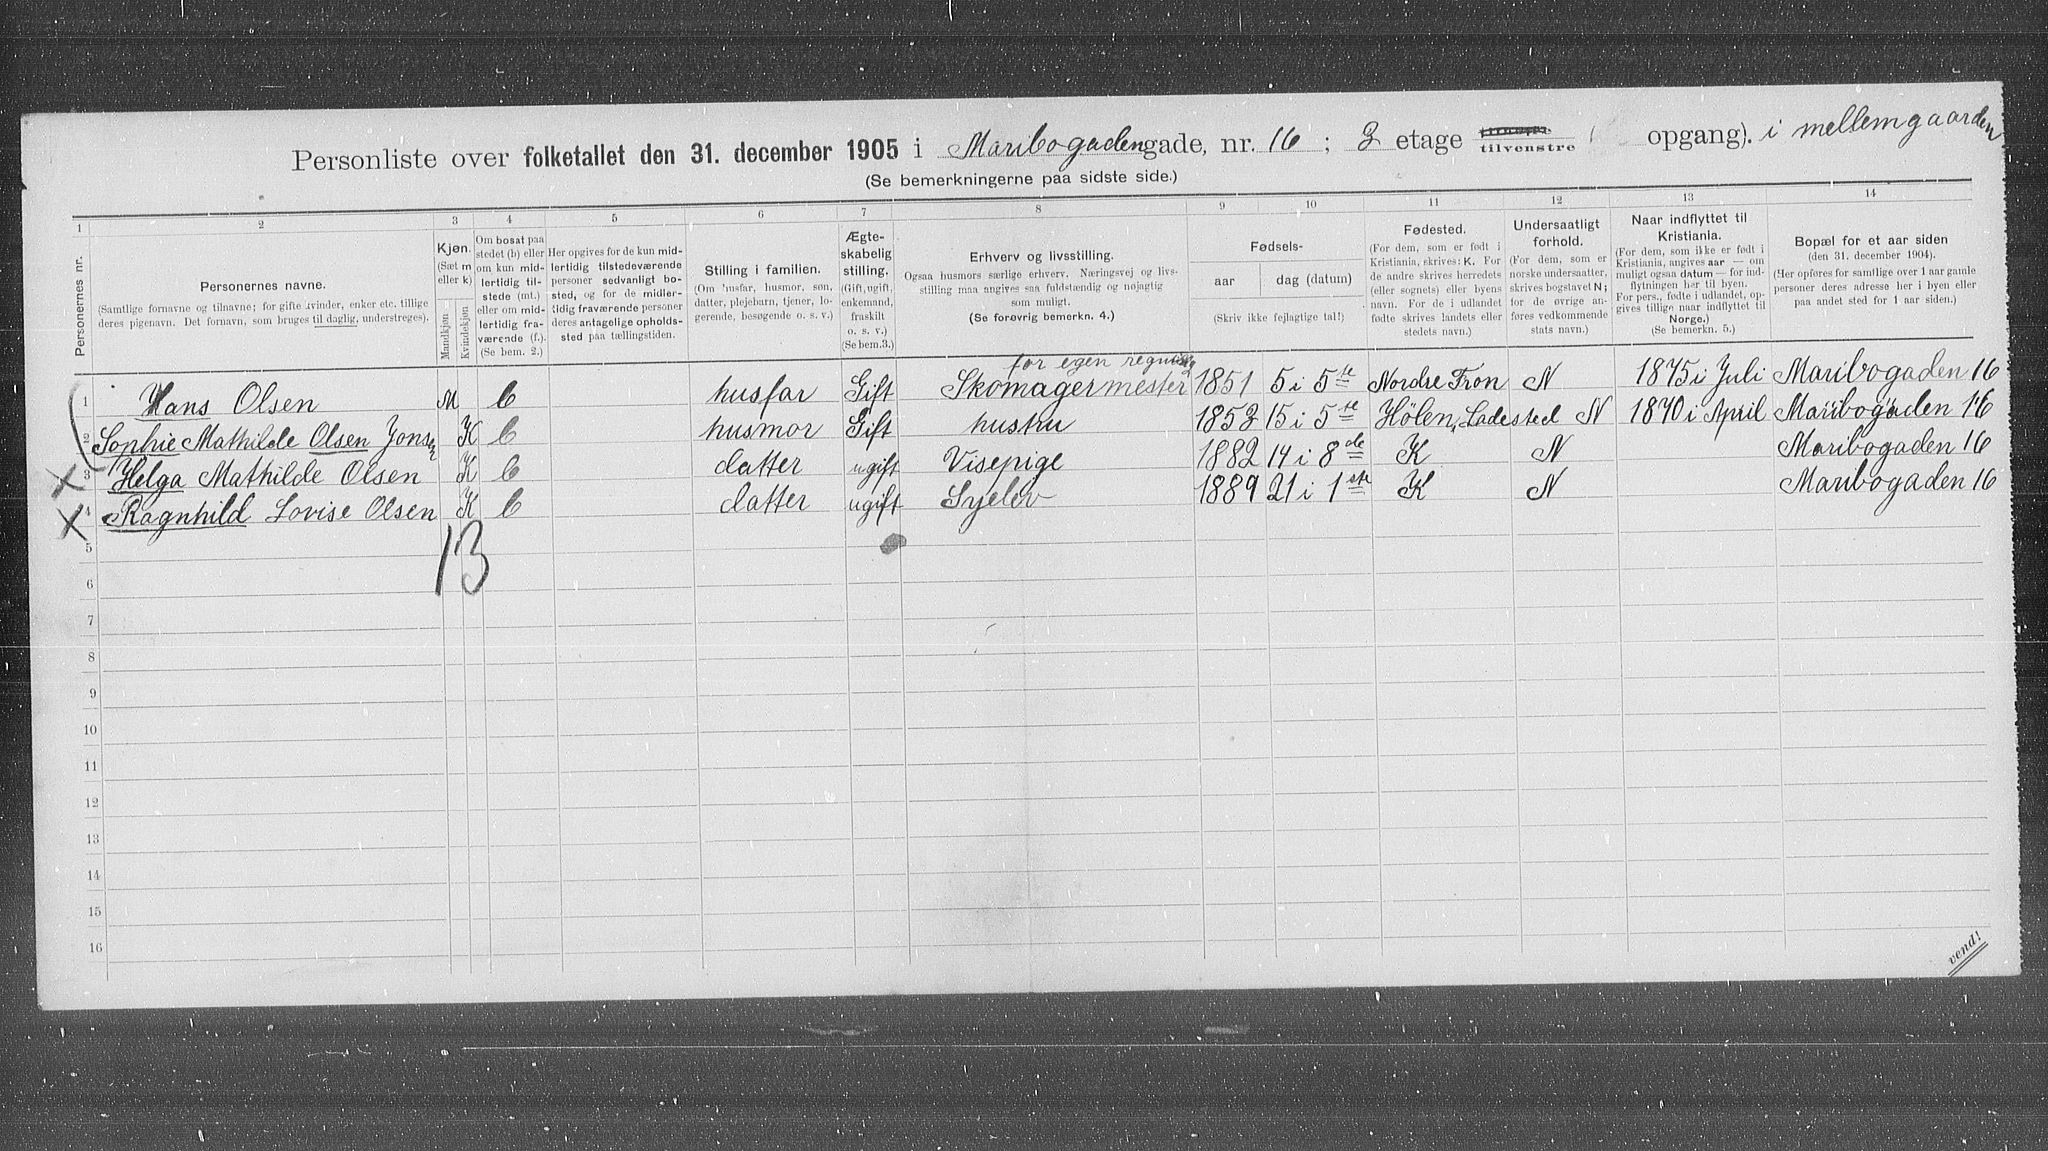 Personliste over folketallet den 31. december 1905 i Maribogaden gade, nr. 16 ; 2 etage tilvenstre opgang). i mellemgaarden
(Se bemerkningerne paa sidste side.)
1 2 3 4 5 6 7 8 9 10 11 12 13 14
Personernes nr.
Personernes navne.
(Samtlige fornavne og tilnavne; for gifte kvinder, enker etc. tillige
deres pigenavn. Det fornavn, som bruges til daglig, understreges).
Kjøn.
(Sæt m
eller k)
Mandkjøn
Kvindekjøn
Om bosat paa
stedet (b) eller
om kun mid-
lertidig til-
stede (mt.)
eller om mid-
lertidig fra-
værende (f.).
(Se bem. 2.)
Her opgives for de kun mid-
lertidig tilstedeværende
personer sedvanligt bo-
sted, og for de midler-
tidig fraværende personer
deres antagelige opholds-
sted paa tællingstiden.
Stilling i familien.
(Om husfar, husmor, søn,
datter, plejebarn, tjener, lo-
gerende, besøgende o. s. v.)
Ægte-
skabelig
stilling.
(Gift, ugift,
enkemand,
fraskilt
o. s. v.)
(Se bem. 3.)
Erhverv og livsstilling.
Ogsaa husmors særlige erhverv. Næringsvej og livs-
stilling maa angives saa fuldstændig og nøjagtig
som muligt.
(Se forøvrig bemerkn. 4.)
Fødsels-
aar dag (datum)
(Skriv ikke fejlagtige tal!)
Fødested.
(For dem, som er født i
Kristiania, skrives: K. For
de andre skrives herredets
(eller sognets) eller byens
navn. For de i udlandet
fødte skrives landets eller
stedets navn.)
Undersaatligt
forhold.
(For dem, som er
norske undersaatter,
skrives bogstavet N;
for de øvrige an-
føres vedkommende
stats navn.)
Naar indflyttet til
Kristiania.
(For dem, som ikke er født i
Kristiania, angives aar — om
muligt ogsaa datum — for ind-
flytningen hær til byen.
For pers., fødte i udlandet, op-
gives tillige naar indflyttet til
Norge.)
(Se bemerkn. 5.)
Bopæl for et aar siden
(den 31. december 1904).
(Her opføres for samtlige over 1 aar gamle
personer deres adresse her i byen eller
paa andet sted for 1 aar siden.)
for egen regning
1 Hans Olsen M b husfar Gift Skomagermester 1851 5 i 5te Nordre Fron N 1875 i Juli Maribogaden 16
2 Sophie Mathilde Olsen Jonsen K b husmor Gift hustru 1852 15 i 5te Hölen, Ladested N 1870 i April Maribogaden 16
3 Helga Mathilde Olsen K b datter ugift Visepige 1882 14 i 8de K N Maribogaden 16
4 Ragnhild Lovise Olsen K b datter ugift Syelev 1889 21 i 1ste K N Maribogaden 16
13
5
6
7
8
9
10
11
12
13
14
15
16
vend!